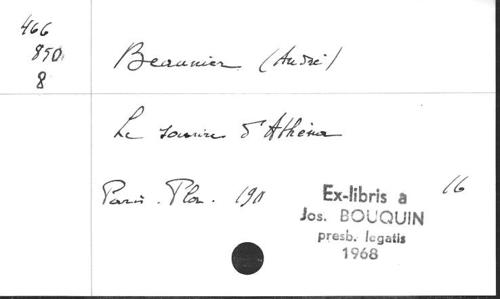 466
850
8
Beaunier (André)
Le sourire d'Athéna
Paris. Plon. 1911
16
Ex-libris a
Jos. BOUQUIN
presb. legatis
1968